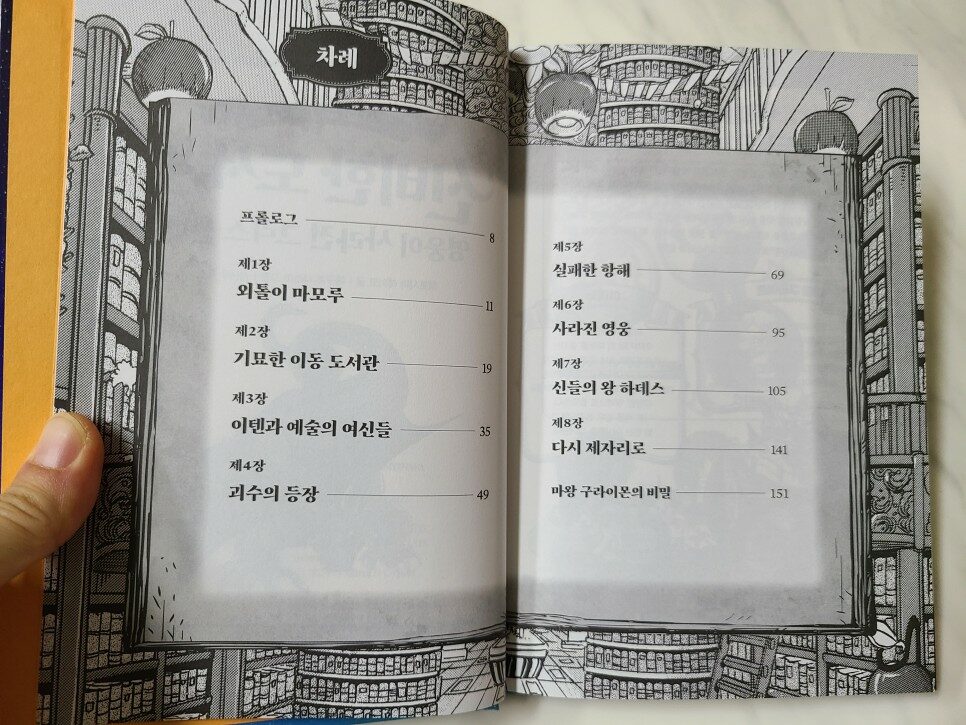 차례
프롤로그 8
제1장
외톨이 마모루 11
제2장
기묘한 이동 도서관 19
제3장
이텐과 예술의 여신들 35
제4장
괴수의 등장 49
제5장
실패한 항해 69
제6장
사라진 영웅 95
제7장
신들의 왕 하데스 105
제8장
다시 제자리로 141
마왕 구라이몬의 비밀 151